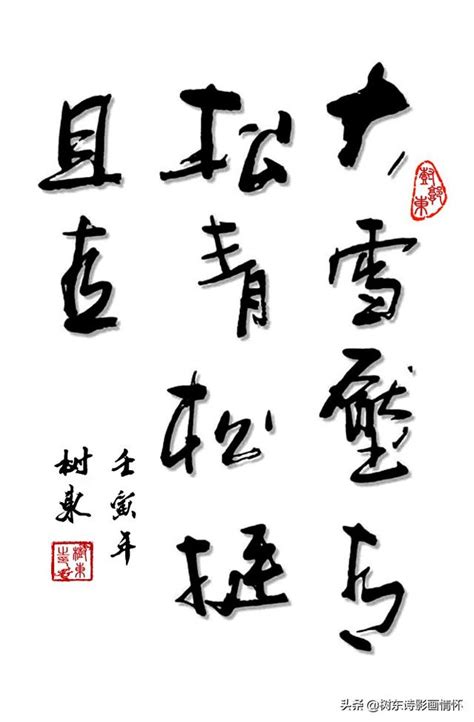 大雪壓青
松青松挺
且直
壬寅年
树東
头条 @树东诗影画情怀